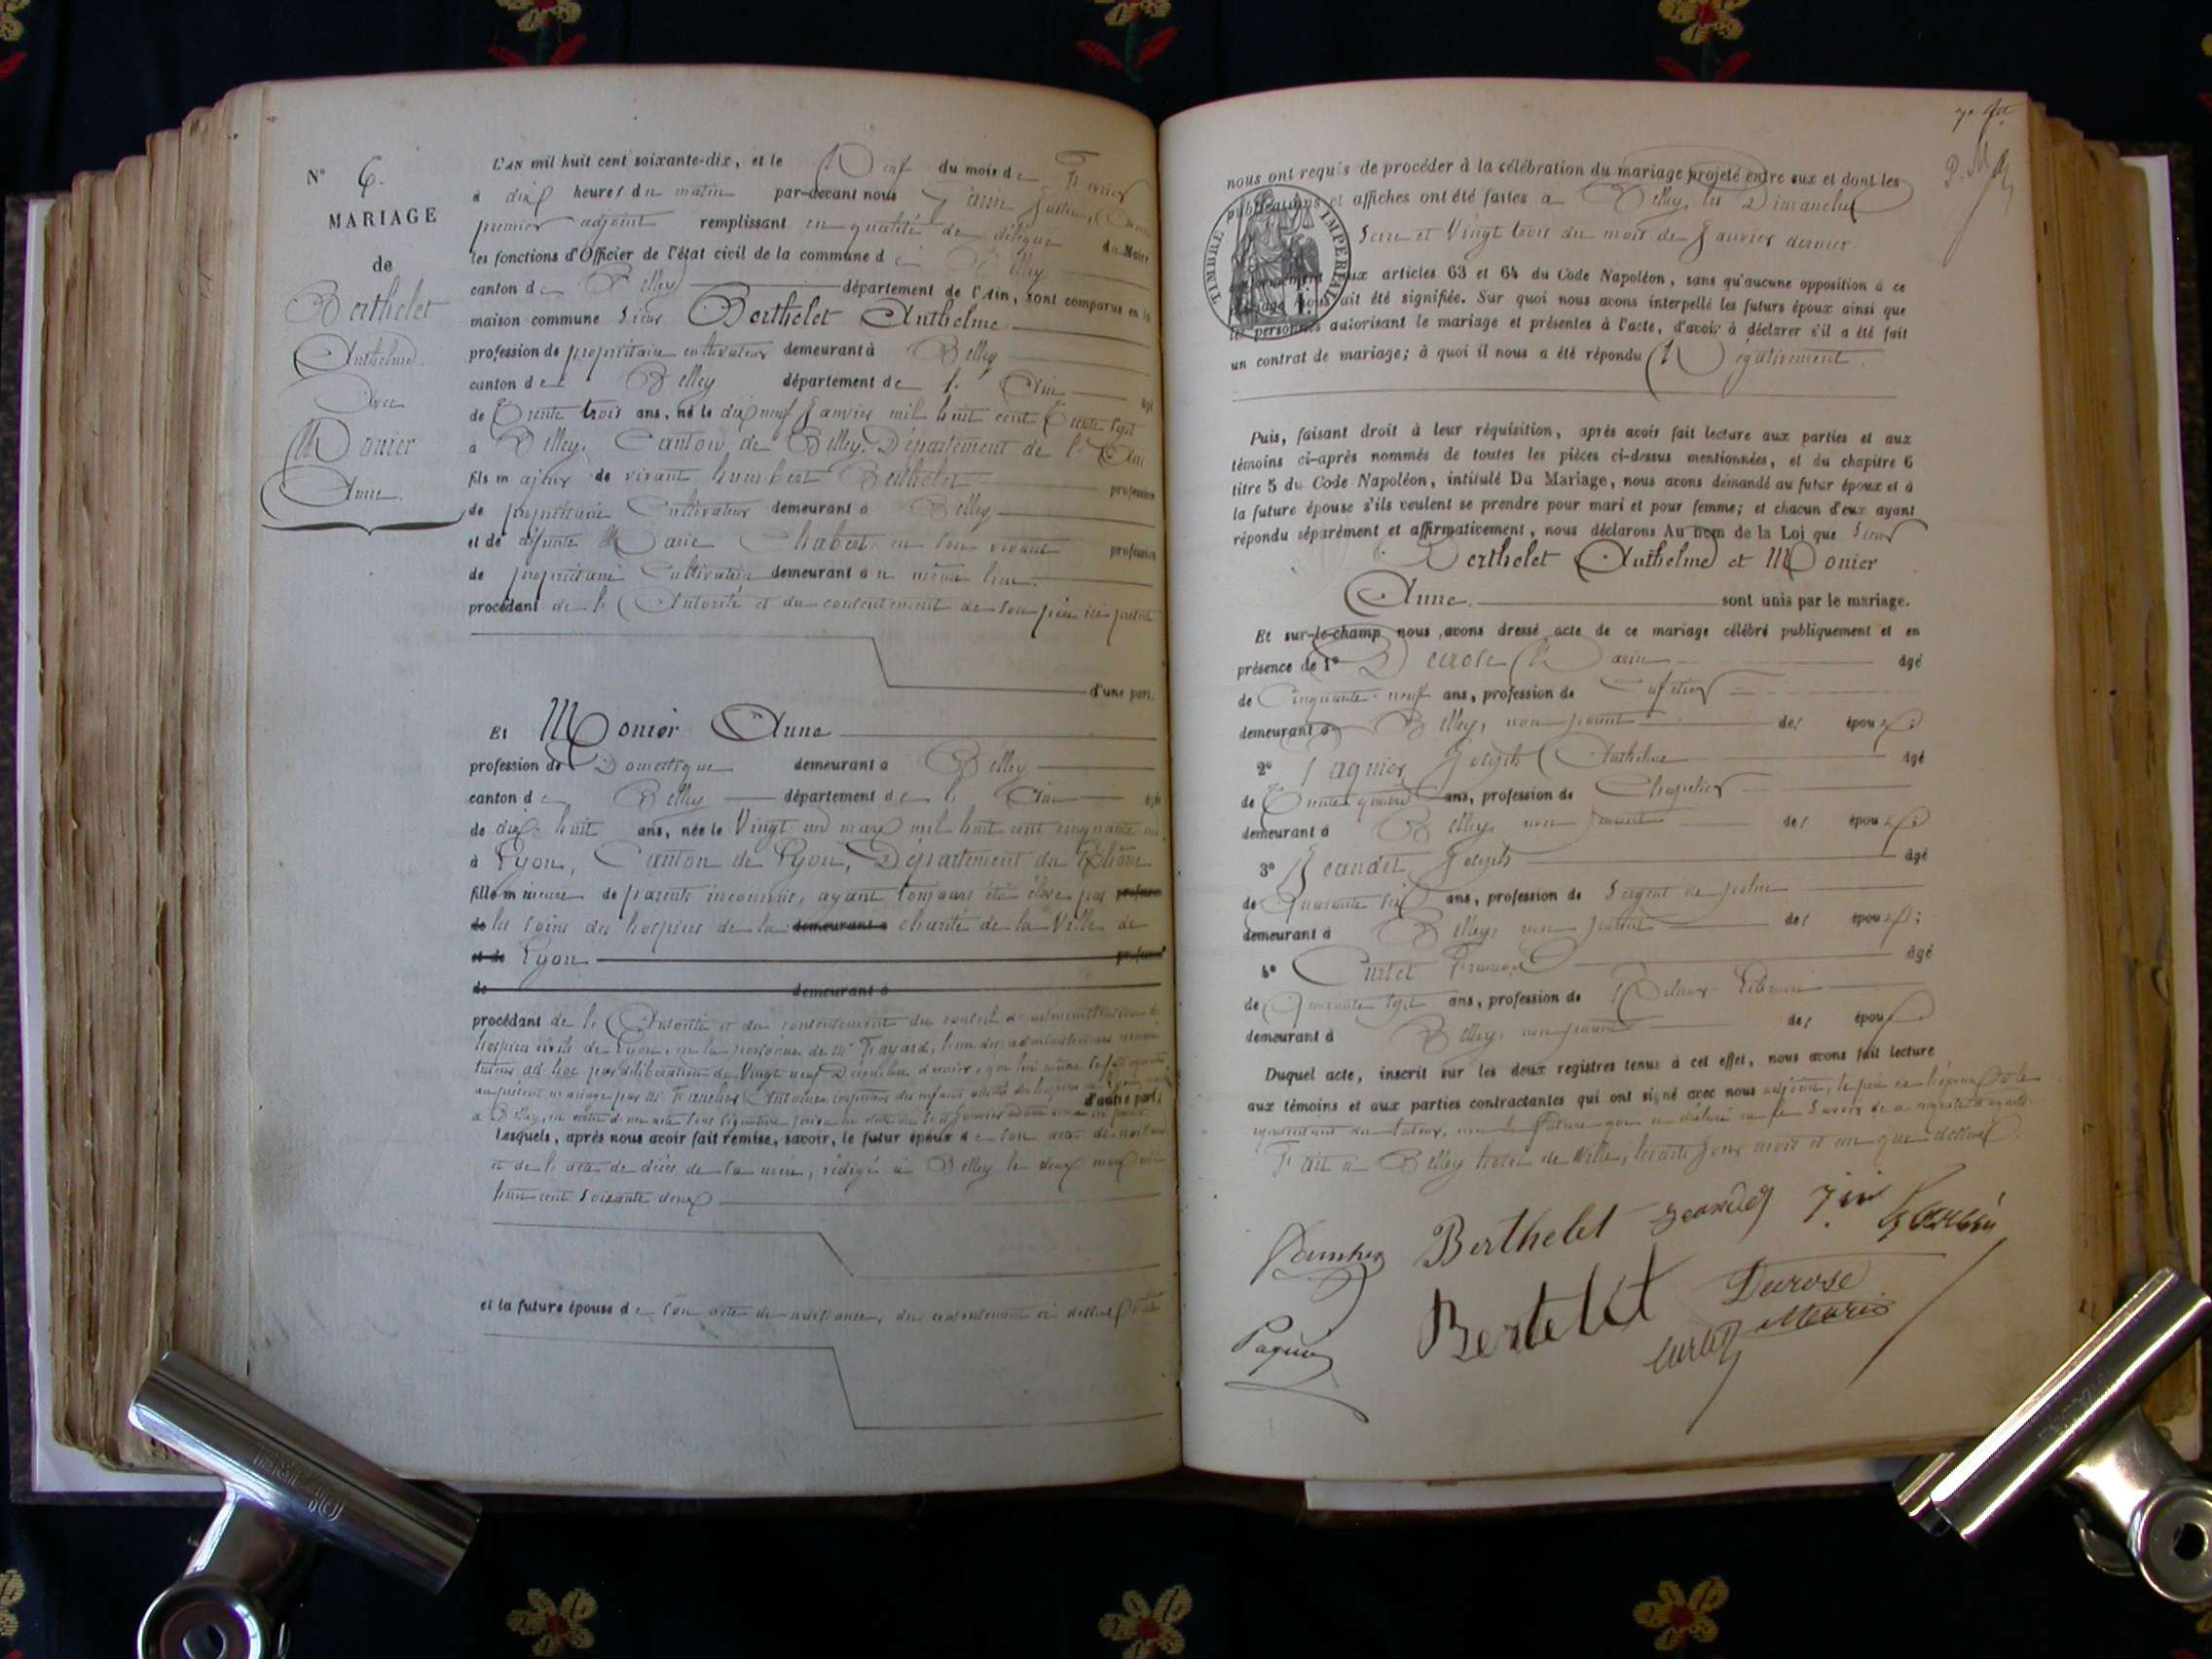 N° 6.
MARIAGE
de
Berthelet
Anthelme.
Avec
Monier
Anne.
L'AN mil huit cent soixante-dix, et le Neuf du mois de Février
à dix heures du matin par-devant nous Jarrin
premier adjoint remplissant en qualité de délégué du Maire
les fonctions d'Officier de l'état civil de la commune de Belley
canton de Belley département de l'Ain, sont comparus en la
maison commune sieur Berthelet Anthelme
profession de propriétaire cultivateur demeurant à Belley
canton de Belley département de l'Ain âgé
de Trente trois ans, né le dix neuf Janvier mil huit cent Trente sept
à Belley, Canton de Belley, Département de l'Ain
fils majeur de vivant humbert Berthelet profession
de propriétaire Cultivateur demeurant à Belley
et de défunte Marie Chabert en son vivant profession
de propriétaire Cultivatrice demeurant à u même lieu.
procédant de l'Autorité et du consentement de son père ici présent
d'une part.
Et Monier Anne
profession de Domestique demeurant à Belley
canton de Belley département de l'Ain âgée
de dix-huit ans, née le Vingt un mars mil huit cent cinquante un
à Lyon, Canton de Lyon, Département du Rhône
fille mineure de parents inconnus, ayant toujours été élevé par profession
de les soins des hospices de la demeurant à charité de la Ville de
et de Lyon profession
de demeurant à
procédant de l'Autorité et du consentement du conseil d'administration des
hospices civils de Lyon, en la personne de Mr Fayard, l'un des administrateurs nommé
tuteur ad hoc par délibération du Vingt neuf Décembre dernier, que lui même
au présent mariage par Mr Francher Antoine, inspecteur des enfants des hospices de Lyon
d'autre part;
à Belley, en vertu d'un acte sous signature privée en date du Janvier
Lesquels, après nous avoir fait remise, savoir, le futur époux de son acte de naissance
et de l'acte de décès de sa mère, rédigé à Belley le deux mars mil
huit cent soixante deux
et la future épouse de son acte de naissance, du consentement ci dessus
nous ont requis de procéder à la célébration du mariage projeté entre eux et dont les
publications et affiches ont été faites à Belley, les Dimanches
Seize et Vingt trois du mois de Janvier dernier
TIMBRE IMPÉRIAL
aux articles 63 et 64 du Code Napoléon, sans qu'aucune opposition à ce
mariage nous ait été signifiée. Sur quoi nous avons interpellé les futurs époux ainsi que
les personnes autorisant le mariage et présentes à l'acte, d'avoir à déclarer s'il a été fait
un contrat de mariage; à quoi il nous a été répondu Négativement.
Puis, faisant droit à leur réquisition, après avoir fait lecture aux parties et aux
témoins ci-après nommés de toutes les pièces ci-dessus mentionnées, et du chapitre 6
titre 5 du Code Napoléon, intitulé Du Mariage, nous avons demandé au futur époux et à
la future épouse s'ils veulent se prendre pour mari et pour femme; et chacun d'eux ayant
répondu séparément et affirmativement, nous déclarons Au nom de la Loi que Sieur
Berthelet Anthelme et Monier
Anne. sont unis par le mariage.
Et sur-le-champ nous avons dressé acte de ce mariage célébré publiquement et en
présence de 1° Derose Marin âgé
de Cinquante-neuf ans, profession de Cafetier
demeurant à Belley, non parent des époux;
2° Pagnier Joseph Anthelme âgé
de Trente quatre ans, profession de Chapelier
demeurant à Belley, non parent des époux;
3° Jeandet Joseph âgé
de Quarante six ans, profession de Sergent de police
demeurant à Belley, non parent des époux;
4° Curtet François âgé
de Quarante sept ans, profession de Relieur Libraire
demeurant à Belley, non parent des époux
Duquel acte, inscrit sur les deux registres tenus à cet effet, nous avons fait lecture
aux témoins et aux parties contractantes qui ont signé avec nous adjoint, le père de l'époux et le
représentant du tuteur, non la future qui a déclaré ne le savoir de ce
Fait à Belley hôtel de Ville, les dits jour mois et an que dessus.
Francher Berthelet Jeandet Jin Jarrin
Bertelet Derose
Marin
Pagnier Curtet